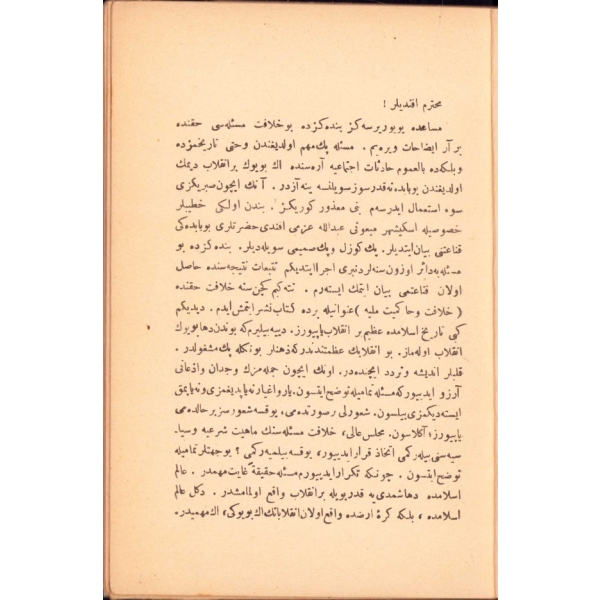 محترم افنديلر !
مساعده بويورير سه كز بنده كزده بو خلافت مسئله سی حقنده
بر آز ايضاحات ويره يم . مسئله پك مهم اولديغندن وحتی تاريخمزده
وبلكه ده بالعموم حادثات اجتماعيه آره سنده اك بويوك بر انقلاب ديمك
اولديغندن بو بابده نه قدر سوز سويلنسه ينه آزدر . آنك ايچون صبريكزی
سوء استعمال ايدرسه م بنی معذور كوريكز . بندن اولكی خطيبلر
خصوصيله اسكيشهر مبعوثی عبدالله عزمی افندی حضرتلری بو بابده كی
قناعتنی بيان ايتديلر . پك كوزل وپك صميمی سويله ديلر . بنده كزده بو
مسئله يه دائر اوزون سنه لردنبری اجرا ايتديكم تتبعات نتيجه سنده حاصل
اولان قناعتمی بيان ايتمك ايسته رم . نته كيم كچن سنه خلافت حقنده
( خلافت وحاكميت مليه ) عنوانيله برده كتاب نشر ايتمش ايدم . ديديكم
كبی تاريخ اسلامده عظيم بر انقلاب ياپيورز . دييه بيليرم كه بوندن دها بويوك
انقلاب اوله ماز . بو انقلابك عظمتندندر كه ذهنلر بونكله پك مشغولدر .
قلبلر انديشه وتردد ايچنده در . اونك ايچون جمله مزك وجدان واذعانی
آرزو ايدييور كه مسئله تماميله توضح ايتسون . يار واغيار نه ياپديغمزی ونه ياپمق
ايسته ديكمزی بيلسون . شعورلی بر صورتده می ، يوقسه شعورسز بر حالده می
ياپيورز ؛ آكلاسون . مجلس عالی ، خلافت مسئله سنك ماهيت شرعيه وسيا-
سيه سنی بيله ركمی اتخاذ قرار ايدييور ، يوقسه بيلميه ركمی ؟ بو جهتلر تماميله
توضح ايتسون . چونكه تكرار ايدييورم مسئله حقيقةً غايت مهمدر . عالم
اسلامده دها شمدی يه قدر بويله بر انقلاب واقع اولمامشدر . دكل عالم
اسلامده ، بلكه كرۀ ارضده واقع اولان انقلاباتك اك بويوكی ، اك مهميدر .